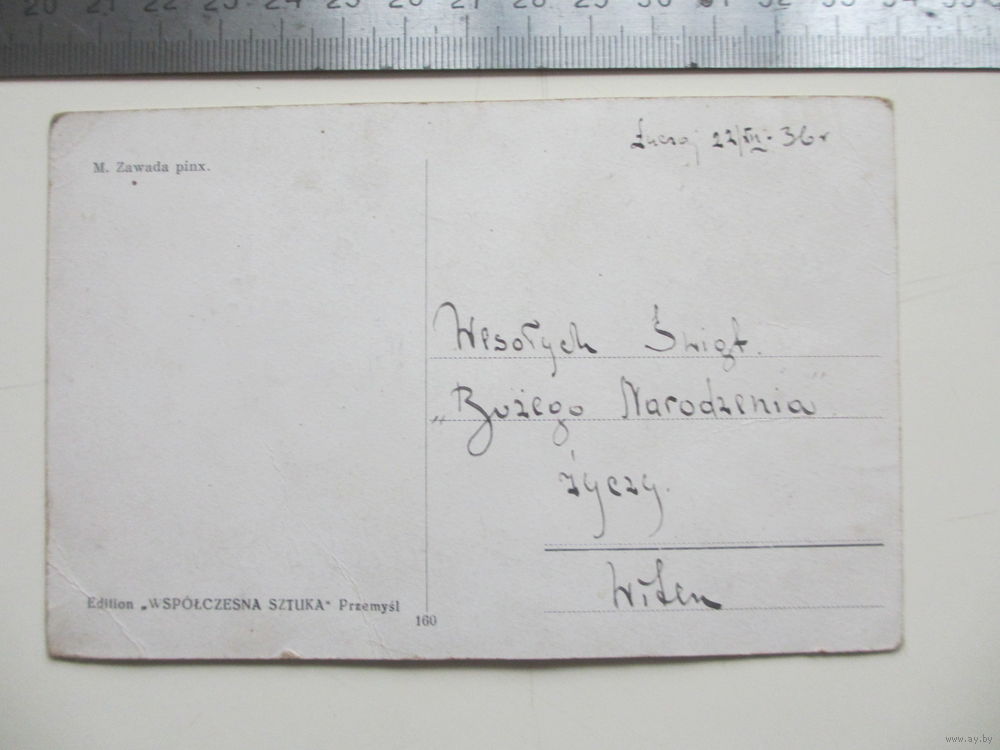 20 21 22 23 24 25 26 27 28 29 30 31 32 33 34 35
M. Zawada pinx.
22/XII. 36 r
Wesołych Świąt.
„Bożego Narodzenia"
życzy.
Edition „WSPÓŁCZESNA SZTUKA" Przemyśl
160
www.ay.by